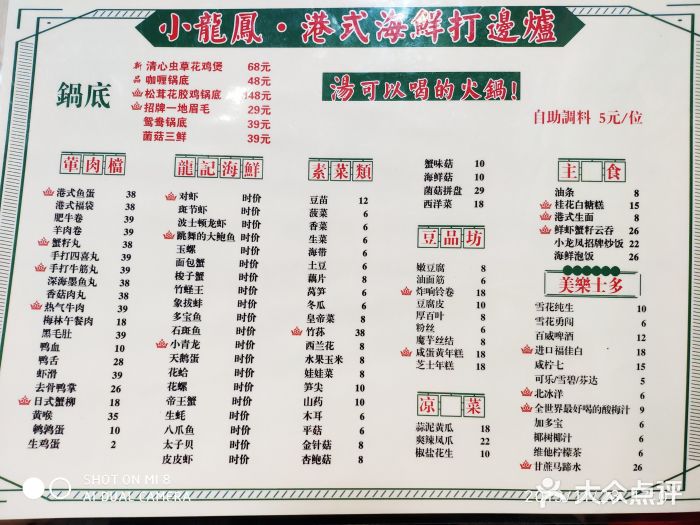 小龍鳳·港式海鮮打邊爐
鍋底
新 清心虫草花鸡煲 68元
品 咖喱锅底 48元
松茸花胶鸡锅底 148元
招牌一地眉毛 29元
鸳鸯锅底 39元
菌菇三鲜 39元
湯可以喝的火鍋!
自助調料 5元/位
葷肉檔
港式鱼蛋 38
港式福袋 38
肥牛卷 39
羊肉卷 39
蟹籽丸 38
手打四喜丸 39
手打牛筋丸 39
深海墨鱼丸 38
香菇肉丸 38
热气牛肉 39
梅林午餐肉 18
黑毛肚 39
鸭血 10
鸭舌 28
虾滑 39
去骨鸭掌 26
日式蟹柳 18
黄喉 35
鹌鹑蛋 10
生鸡蛋 2
龍記海鮮
对虾 时价
斑节虾 时价
波士顿龙虾 时价
跳舞的大鲍鱼 时价
玉螺 时价
面包蟹 时价
梭子蟹 时价
竹蛏王 时价
象拔蚌 时价
多宝鱼 时价
石斑鱼 时价
小青龙 时价
天鹅蛋 时价
花蛤 时价
花螺 时价
帝王蟹 时价
生蚝 时价
八爪鱼 时价
太子贝 时价
皮皮虾 时价
素菜類
豆苗 12
菠菜 6
香菜 6
生菜 6
海带 6
土豆 6
藕片 8
莴笋 6
冬瓜 6
皇帝菜 8
竹荪 38
西兰花 8
水果玉米 8
娃娃菜 8
笋尖 10
山药 10
木耳 6
平菇 6
金针菇 8
杏鲍菇 8
蟹味菇 10
海鲜菇 10
菌菇拼盘 29
西洋菜 18
豆品坊
嫩豆腐 8
油面筋 6
炸响铃卷 18
豆腐皮 10
厚百叶 8
粉丝 6
魔芋丝结 8
咸蛋黄年糕 18
芝士年糕 18
凉菜
蒜泥黄瓜 18
爽辣凤爪 22
椒盐花生 10
主食
油条 8
桂花白糖糕 15
港式生面 8
鲜虾蟹籽云吞 26
小龙凤招牌炒饭 22
海鲜泡饭 26
美樂士多
雪花纯生 10
雪花勇闯 6
百威啤酒 12
进口福佳白 18
咸柠七 15
可乐/雪碧/芬达 5
北冰洋 6
全世界最好喝的酸梅汁 9
加多宝 6
椰树椰汁 6
维他柠檬茶 6
甘蔗马蹄水 26
SHOT ON MI 8
AI DUAL CAMERA
大众点评